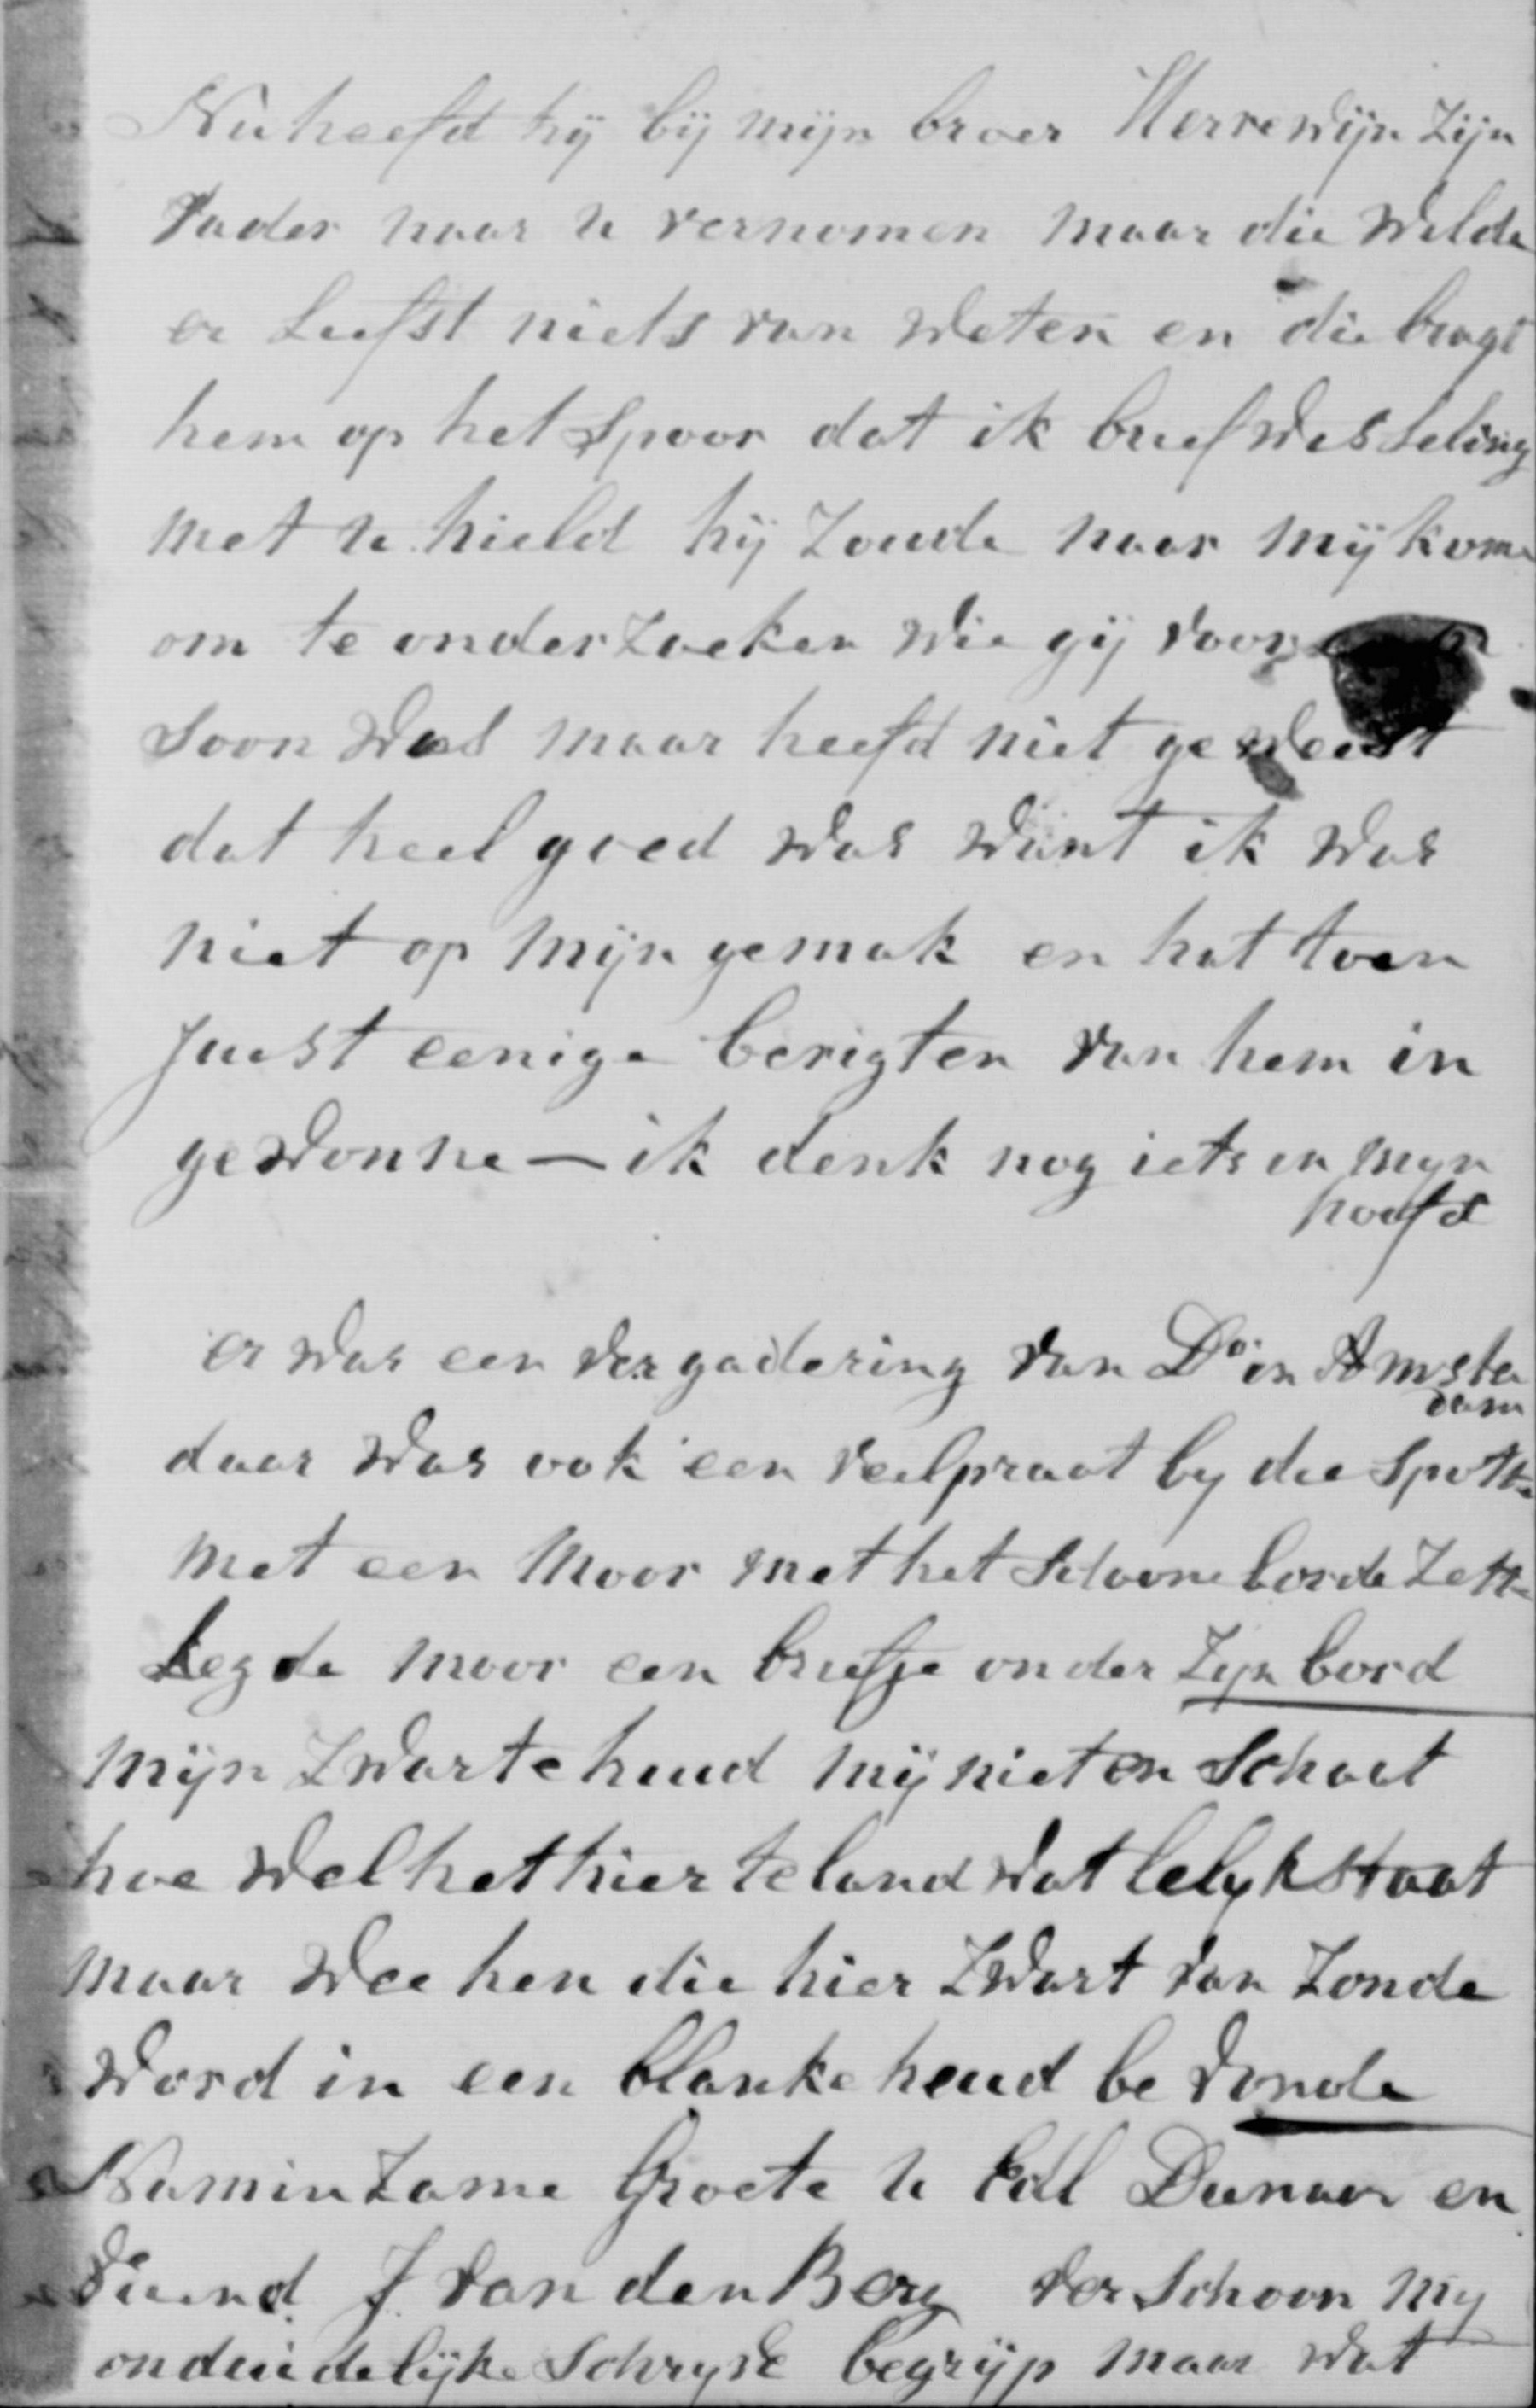 Nu heefd hij bij mijn broer Herrewijn zijn
vader naar u vernomen maar die wilde
er liefst niets van weten en die bragt
hem op het spoor dat ik briefwisseling
met u hield hij zoude naar mij kome
om te onderzoeken wie gij voor
soon was maar heefd niet geweest
dat heel goed was want ik was
niet op mijn gemak en hat toen
juist eenige berigten van hem in
gewonne — ik denk nog iets in myn
hoofd
er was een vergadering van Ds in Amster
dam
daar was ook een veelpraat by die spotte
met een Moor met het schoone borde zette
Legde moor een briefje onder zyn bord
mijn zwarte huud mij niet en schaat
hoe wel het hier te land wat lelyk staat
maar wee hen die hier zwart van zonde
word in een blanke heud be vonde
Naminzame Groete u Edl Dienaar en
vriend J van den Berg verschoon my
onduidelijke schryve begrijp maar wat